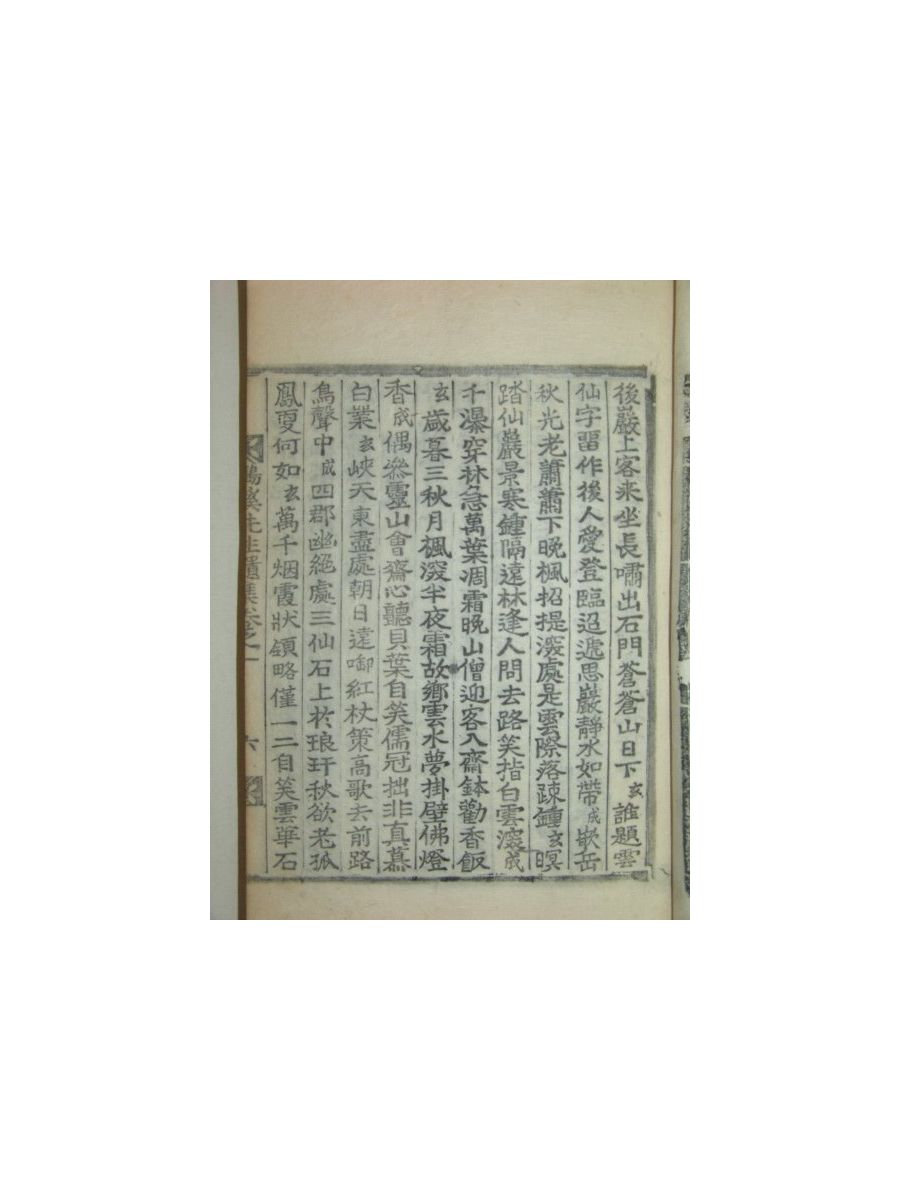 後巖上客来坐長嘯出石門蒼蒼山日下玄誰題雲
仙字留作後人愛登臨迢遞思巖靜水如帶成嶔岳
秋光老蕭蕭下晩楓招提深處是雲際落疎鍾玄暝
踏仙巖景寒鍾隔遠林逢人問去路笑指白雲深成
千瀑穿林急萬葉凋霜晩山僧迎客入齋鉢勸香飯
玄歲暮三秋月楓深半夜霜故鄉雲水夢掛壁佛燈
香成偶叅靈山會齋心聽貝葉自笑儒冠拙非真慕
白業玄峽天東盡處朝日遠啣紅杖策高歌去前路
鳥聲中成四郡幽絕處三仙石上於琅玕秋欲老孤
鳳更何如玄萬千烟霞狀領略僅一二自笑雲華石
溪先生遺集卷之一 六